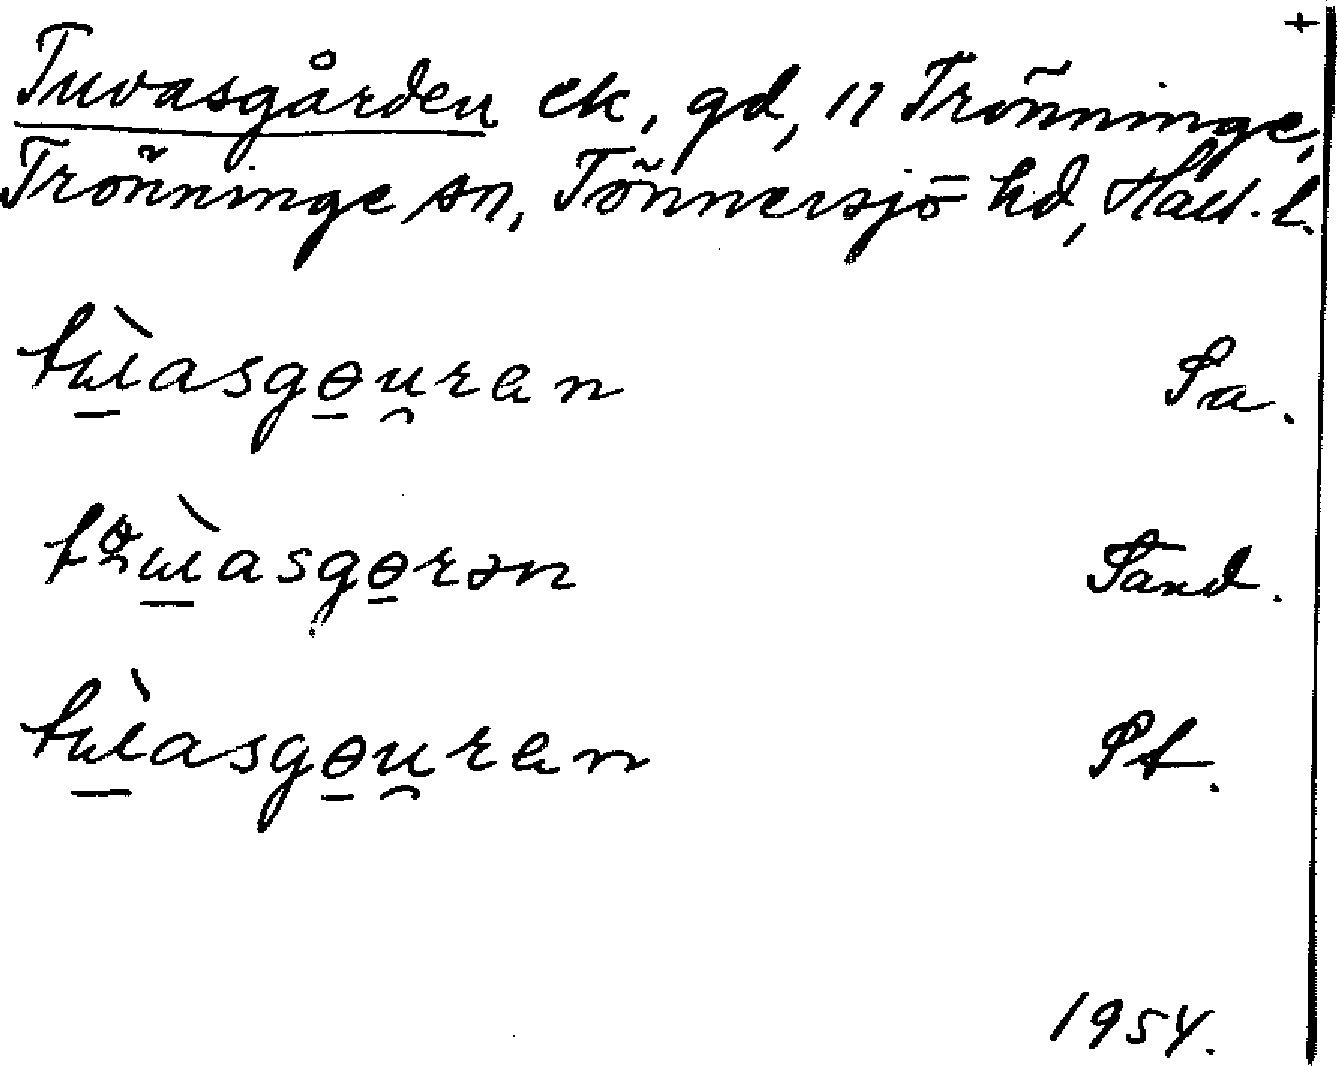 +
Tuvasgården ek, gd, 11 Trönninge,
Trönninge sn, Tönnersjö hd, Hall. l.
tɯ̲̀asgɵ̲u̯ran Sa.
Sand.
tɯ̲̀asgɵ̲u̯ran St.
1954.